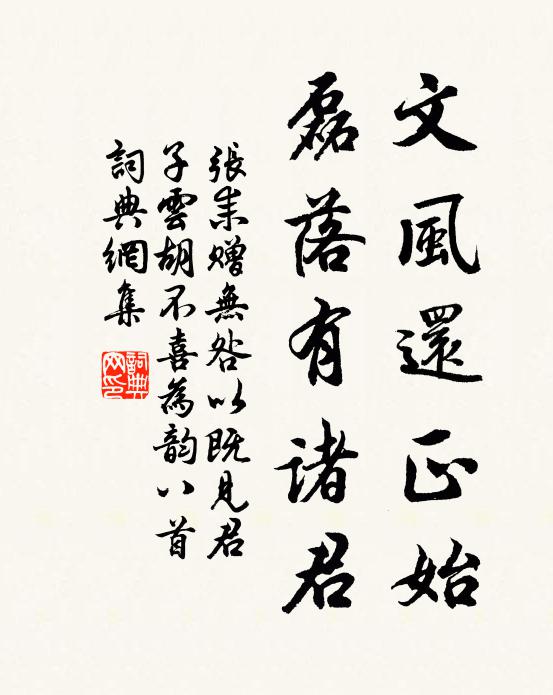 文風還正始
磊落有諸君
張耒贈無咎以既見君
子雲胡不喜為韵八首
詞典網集
詞典网印